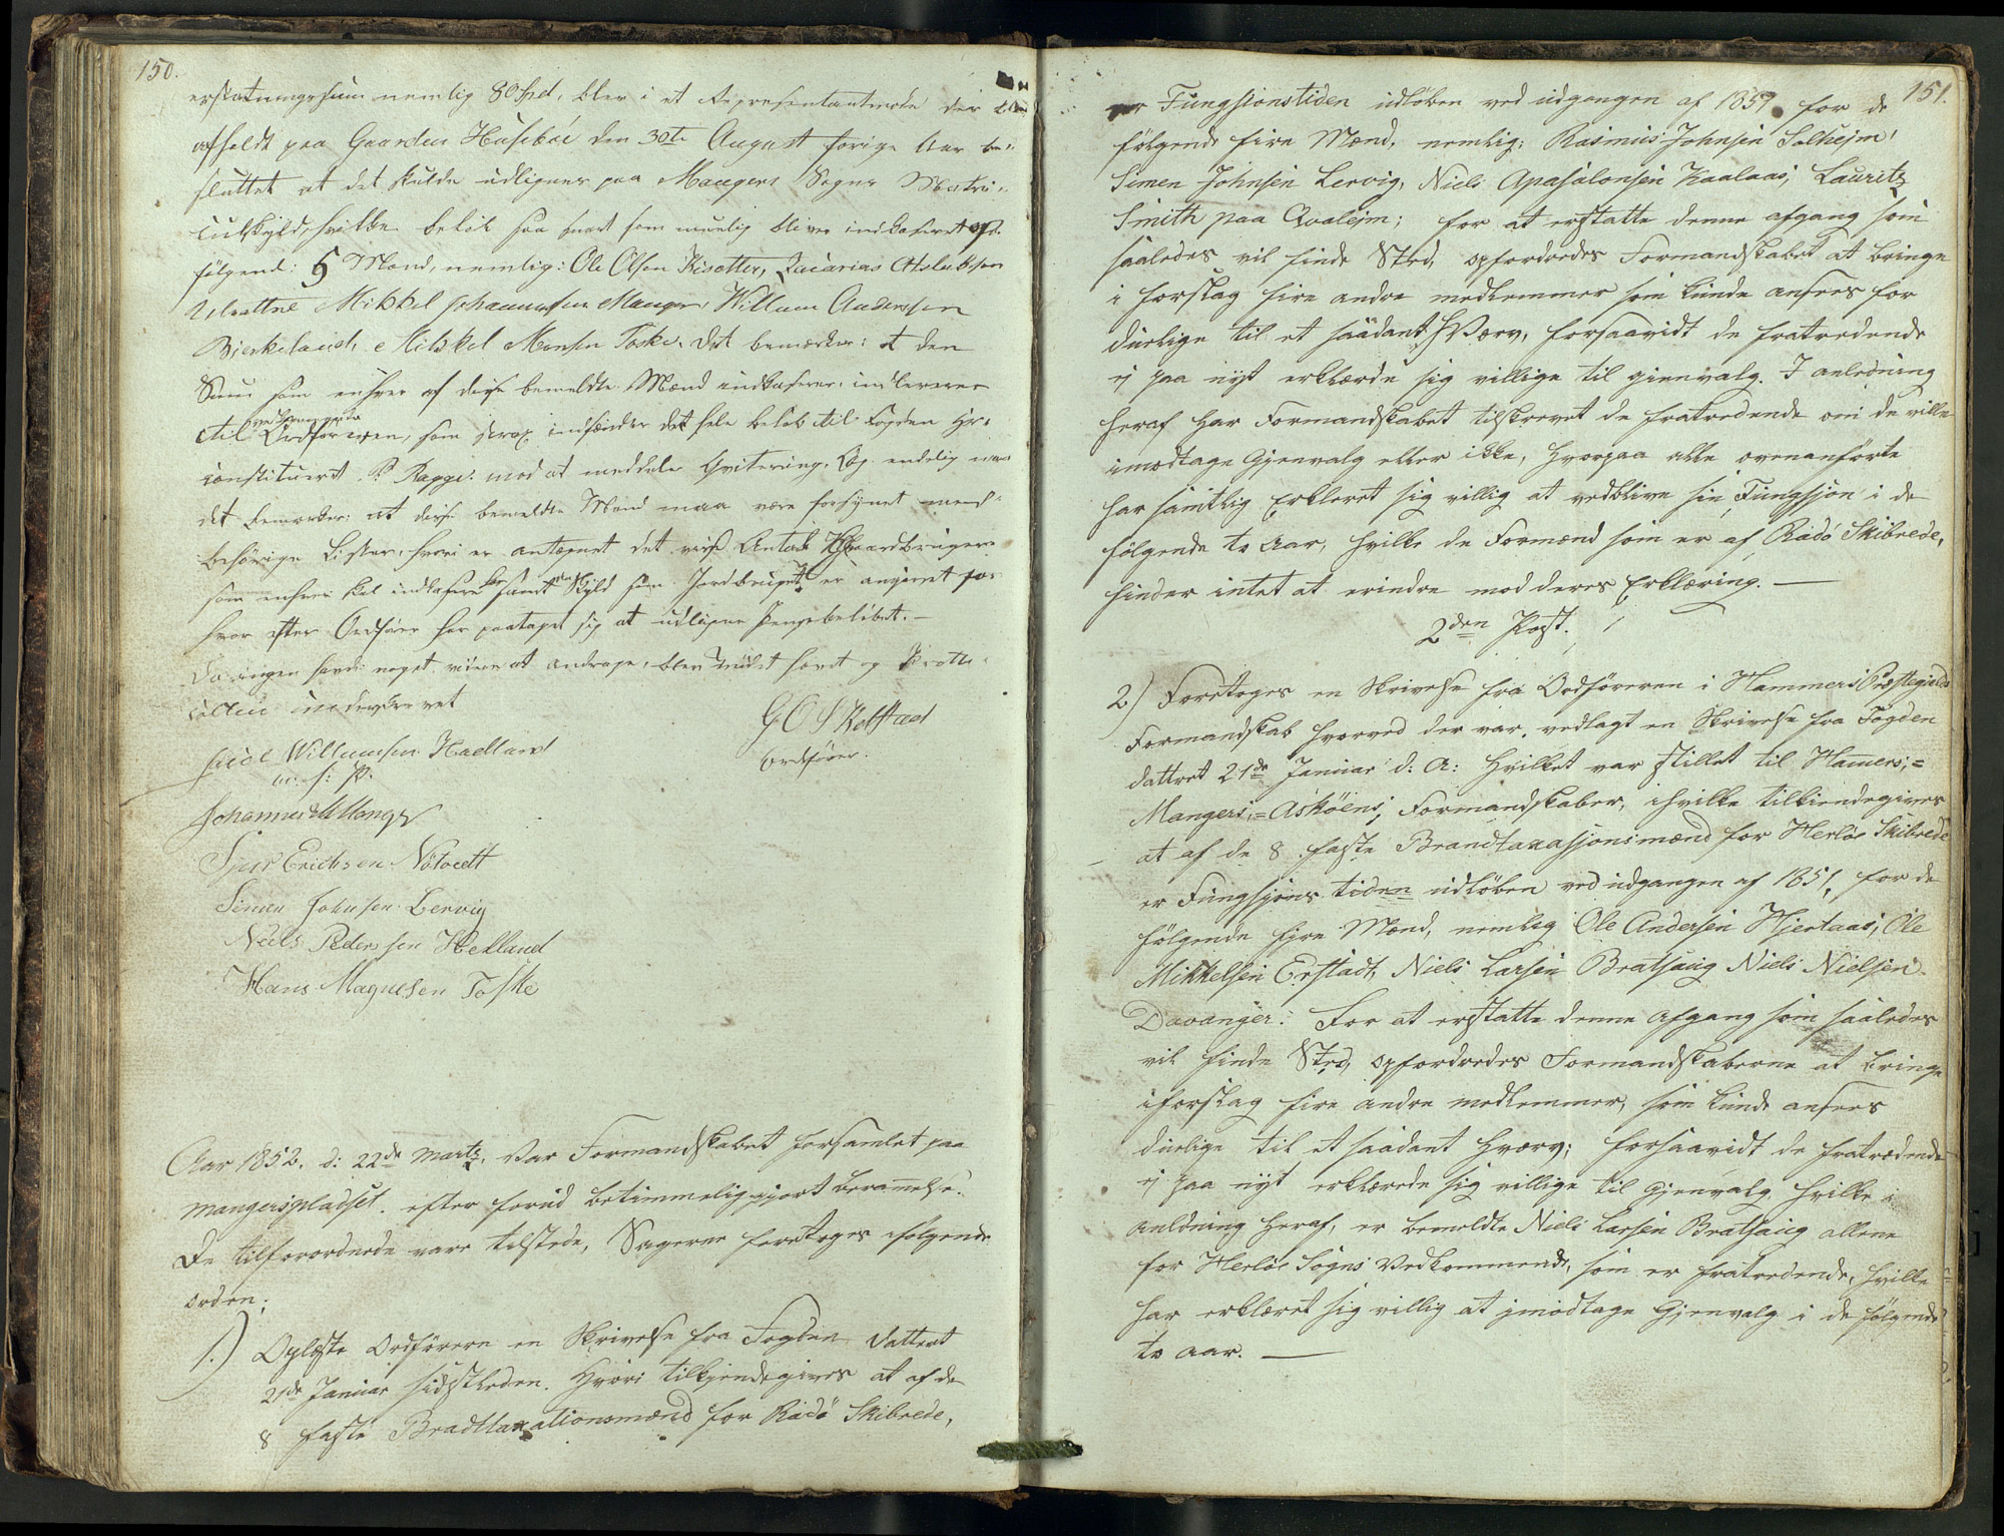 150.
erstatningssum nemlig 80 Spd, blev i et Representantmøde der blev
afholdt paa Gaarden Husebøe den 30te August forige Aar be-
sluttet at det skulde udlignes paa Mangers Sogns Matri-
culskyld, hvilke beløb saa snart som muelig bliver indkaseret af
følgend: 5 Mænd, nemlig: Ole Olsen Risetter, Zacarias Atslaksen
Mikkel Johannesen Manger, Willum Andersen
Bierkeland, Mikkel Monsen Toske. Det bemærkes: at den
Sum som enhver af disse bemeldte Mænd indkaserer, indleveres
til Ordføreren, som indsender det hele beløb til Fogden Hr.
constitueret P. Ragge: mod at meddele Qvitering. Og endelig maa
det bemærkes: at disse bemeldte Mænd maa være forsynet med
behørige Lister, hvori er antegnet det visse Antal Gaardbrugere
som enhver skal indkasere for samt den Skyld som Jordbruget er angivet for
hvor efter Ordfører har paataget sig at udligne Pengebeløbet. —
Da ingen havde noget videre at andrage, blev Mødet hævt og Protto-
collen underskrevet
G O S Kolstad
Ordfører.
Willumsen Hadland
m. f. P.
Johannes M Mangr
Sjur Erichsen Nøtvedt
Simen Johnsen Lervig
Niels Pedersen Helland
Hans Magnesen Toske
Aar 1852. d: 22de Martz. var Formandskabet forsamlet paa
Mangerspladset. efter forud betimmelig gjort berammelse.
De tilforordnede vare tilstede, Sagerne foretoges følgende
orden;
1.) Oplæste Ordføreren en Skrivelse fra Fogden datteret
21de Januar sidstleden. Hvori tilkjendegives at af de
8 faste Bradttaxationsmænd for Radø Skibrede,
151.
er Fungsionstiden udløben ved udgangen af 1851, for de
følgende fire Mænd, nemlig: Rasmus Johnsen Solhejm,
Simen Johnsen Lervig, Niels Apasalonsen Kaalaas, Lauritz
Smith paa Qvalejm; for at erstatte denne afgang som
saaledes vil finde Sted, opfordredes Formandskabet at bringe
i forslag fire andre medlemmer som kunde ansees for
duelige til et saadant Hværv, forsaavidt de fratredende
ej paa nyt erklærde sig villige til gienvalg. I anledning
heraf har Formandskabet tilskrevet de fratredende om de ville
imodtage Gjenvalg eller ikke, hvorpaa alle ovenanførte
har samtlig Erkleret sig villig at vedblive sin Fungsjon i de
følgende to Aar, hvilke de Formænd som er af Radø Skibrede,
finder intet at erindre mod deres Erklæring. —
2den Post.
2) Foretoges en Skrivelse fra Ordføreren i Hammers Præstegields
Formandskab hvorved der var vedlagt en Skrivelse fra Fogden
dattret 21de Januar d: A: hvilket var stillet til Hamers;=
Mangers;= Askøens; Formandskaber, ihvilke tilkiendegives
at af de 8 faste Brandtaxasjonsmænd for Herløe Skibrede
er Fungsjons tiden udløben ved udgangen af 1851, for de
følgende fyre Mænd, nemleg Ole Andersen Hjertaas, Ole
Mikkelsen Erstad, Niels Larsen Bratsaug Niels Nielsen
Davanger: For at erstatte denne Afgang som saaledes
vil finde Sted, opfordredes Formandskaberne at bringe
iforslag fire andre medlemmer, som kunde ansees
duelige til et saadant Hværv; forsaavidt de fratrædende
ej paa nyt erklærede sig villige til Gjenvalg hvilke i
anledning heraf, er bemeldte Niels Larsen Bratsaug allene
for Herløe Sogns Vedkommende, som er fratredende, hvilke
har erkleret sig villig at jmodtage Gjenvalg i de følgende
to aar. —